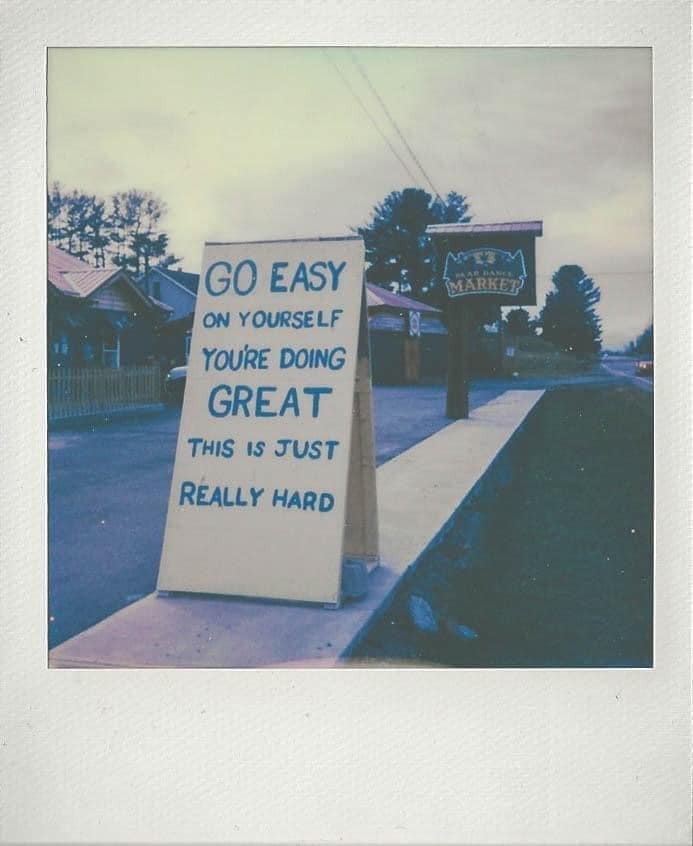 GO EASY
ON YOURSELF
YOU'RE DOING
GREAT
THIS IS JUST
REALLY HARD
BEAR DANCE
MARKET